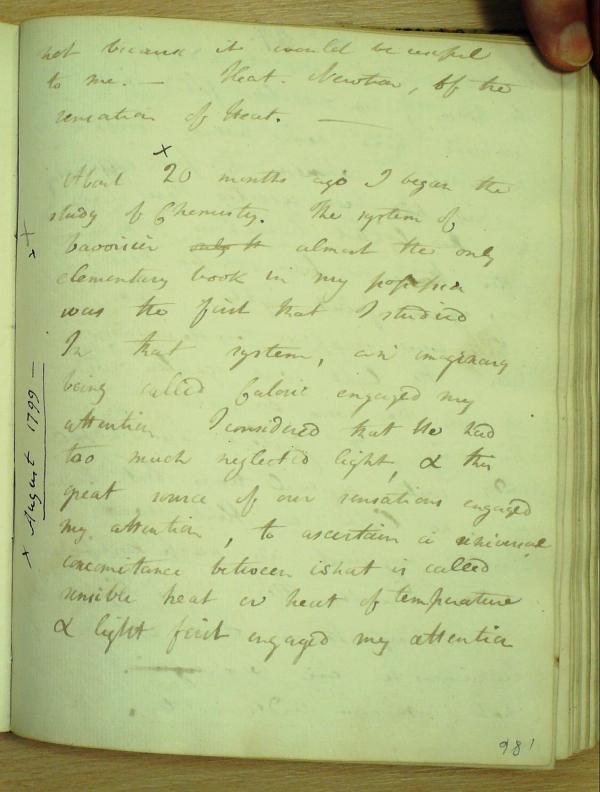 not because it would be useful
to me. — Heat. Newton, Of the
sensation of Heat. —
x
About 20 months ago I began the
study of Chemistry. The system of
Lavoisier only it almost the only
elementary book in my possession
was the first that I studied
In that system, an imaginary
being called Caloric engaged my
attention I considered that He had
too much neglected light, & this
great source of our sensations engaged
my attention, to ascertain a universal
concomitance between what is called
sensible heat or heat of temperature
& light first engaged my attention
x August 1799 —
x
981